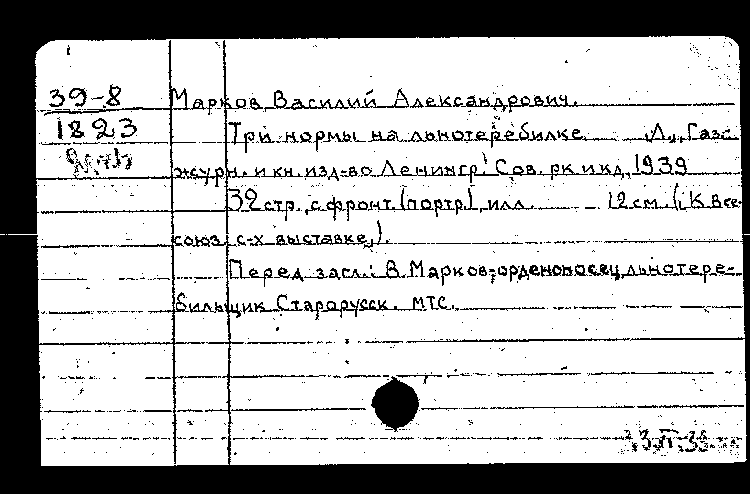 39-8 Марков Василий Александрович.
1823 Три нормы на льнотеребилке. Л., Газ.-
журн. и кн. изд-во Ленингр. Сов. рк и кд, 1939
32 стр., с фронт. (портр.), илл. 12 см. („К Все-
союз. с-х выставке„).
Перед загл.: В. Марков-орденоносец льнотере-
бильщик Старорусск. МТС.